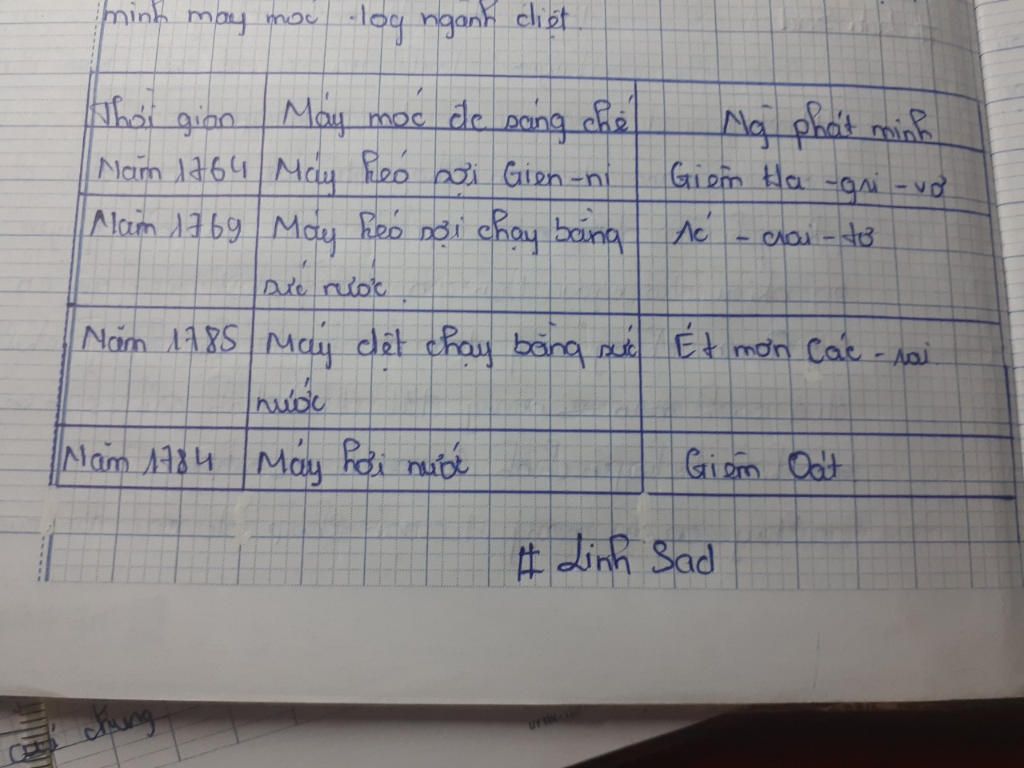 minh máy móc trog ngành dệt.
Thời gian Máy móc đc sáng chế Ng phát minh
Năm 1764 Máy kéo sợi Gien-ni Giêm Ha-gri-vơ
Năm 1769 Máy kéo sợi chạy bằng Ác-crai-tơ
sức nước.
Năm 1785 Máy dệt chạy bằng sức Ét mơn Các-rai
nước
Năm 1784 Máy hơi nước Giêm Oát
# Linh Sad
chung